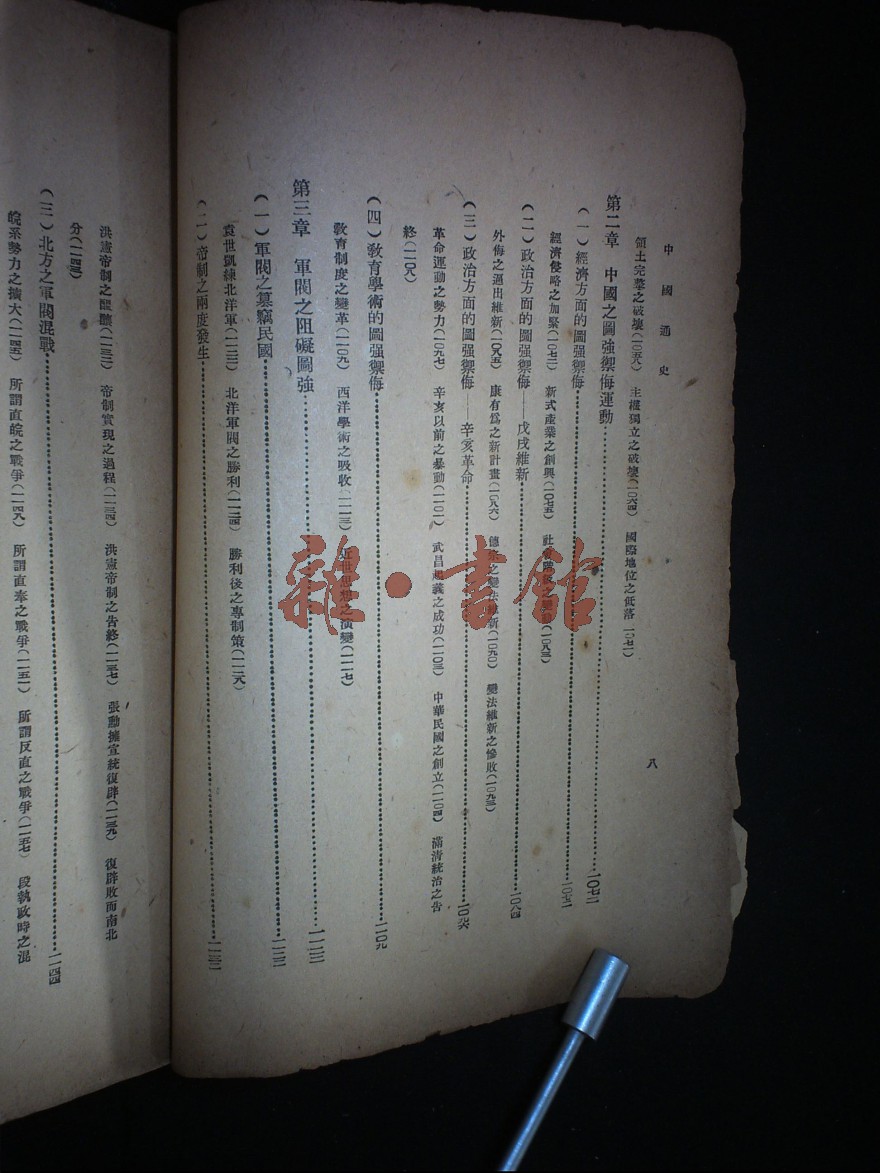 中國通史
八
領土完整之破壞(一〇五八) 主權獨立之破壞(一〇六四) 國際地位之低落
第二章 中國之圖強禦侮運動……一〇七二
(一)經濟方面的圖强禦侮
經濟侵略之加緊(一〇七三) 新式產業之創興(一〇七五)
(二)政治方面的圖强禦侮——戊戌維新……一〇八四
外侮之逼出維新(一〇八五) 康有爲之新計畫(一〇八六) 德宗之變法維新(一〇九〇) 變法維新之慘敗(一〇九三)
(三)政治方面的圖强禦侮——辛亥革命
革命運動之勢力(一〇九七) 辛亥以前之暴動(一一〇一) 武昌起義之成功(一一〇三) 中華民國之創立(一一〇四) 滿清統治之告
終(一一〇八)
(四)敎育學術的圖强禦侮……一一〇九
敎育制度之變革(一一〇九) 西洋學術之吸收(一一一三) 近世思想之演變(一一一七)
第三章 軍閥之阻礙圖強……一一二三
(一)軍閥之篡竊民國……一一二三
袁世凱練北洋軍(一一二三) 北洋軍閥之勝利(一一二四) 勝利後之專制策(一一二八)
(二)帝制之兩度發生……一一三二
洪憲帝制之醞釀(一一三三) 帝制實現之過程(一一三四) 洪憲帝制之告終(一一三七) 張勳擁宣統復辟(一一三九) 復辟敗而南北
分(一一四三)
(三)北方之軍閥混戰……一一四四
皖系勢力之擴大(一一四五) 所謂直皖之戰爭(一一四八) 所謂直奉之戰爭(一一五一) 所謂反直之戰爭(一一五七) 段執政時之混
雜·書館